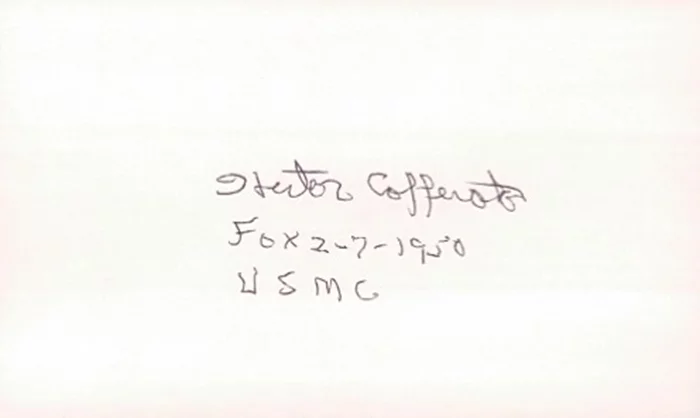 Hector Cafferata
Fox 2-7-1950
USMC